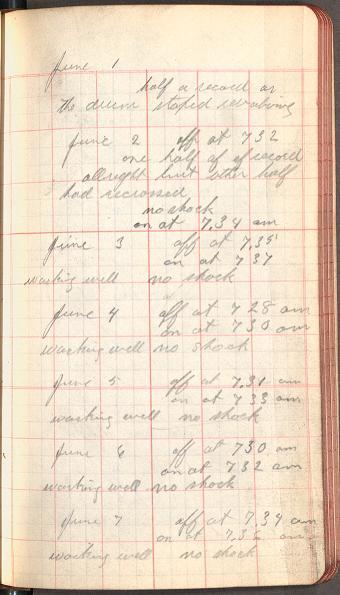 June 1
half a record as
the drum stoped revolving
June 2 off at 7 32
one half of of record
allright but other half
had recrossed
no shock
on at 7.34 am
June 3 off at 7.35
on at 7 37
working well no shock
June 4 off at 7 28 am
on at 7 30 am
working well no shock
June 5 off at 7.31 am
on at 7 33 am
working well no shock
June 6 off at 730 am
on at 732 am
working well no shock
June 7 off at 7.34 am
on at 7.36 am
working well no shock